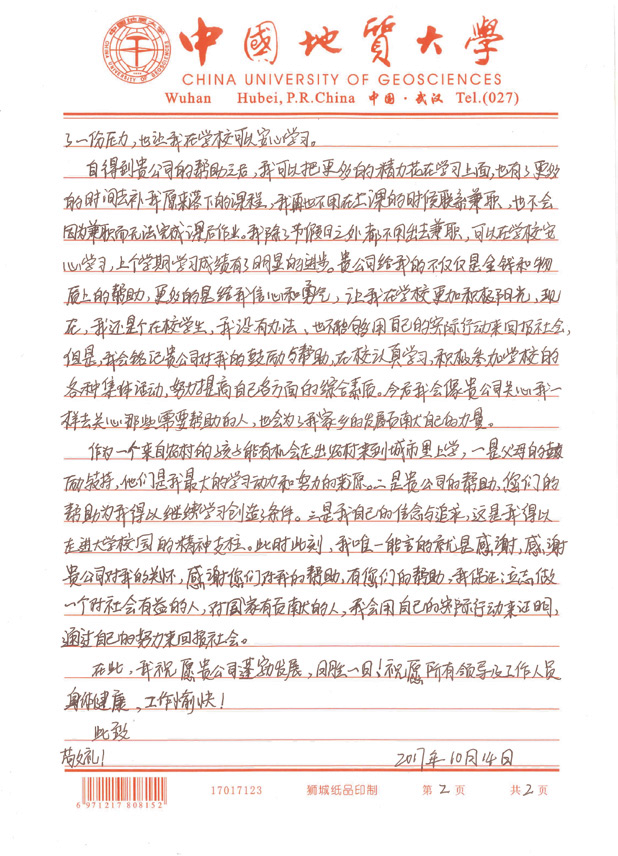 中國地質大學
CHINA UNIVERSITY OF GEOSCIENCES
Wuhan Hubei, P.R.China 中国·武汉 Tel.(027)
了一份压力,也让我在学校可以安心学习。
自得到贵公司的帮助之后,我可以把更多的精力花在学习上面,也有了更多
的时间去补我原来落下的课程,我再也不用在上课的时候联系兼职,也不会
因为兼职而无法完成课后作业。我除了节假日之外都不用出去兼职,可以在学校安
心学习,上个学期学习成绩有了明显的进步。贵公司给我的不仅仅是金钱和物
质上的帮助,更多的是给我信心和勇气,让我在学校更加积极阳光,现
在,我还是个在校学生,我没有办法、也不能够用自己的实际行动来回报社会,
但是,我会铭记贵公司对我的鼓励与帮助,在校认真学习,积极参加学校的
各种集体活动,努力提高自己各方面的综合素质。今后我会像贵公司关心我一
样去关心那些需要帮助的人,也会为了我家乡的发展贡献自己的力量。
作为一个来自农村的孩子能有机会走出农村来到城市里上学,一是父母的鼓
励与支持,他们是我最大的学习动力和努力的来源。二是贵公司的帮助,您们的
帮助为我得以继续学习创造了条件。三是我自己的信念与追求,这是我得以
走进大学校园的精神支柱。此时此刻,我唯一能言的就是感谢,感谢
贵公司对我的关怀,感谢您们对我的帮助,有您们的帮助,我保证:立志做
一个对社会有益的人,对国家有贡献的人,我会用自己的实际行动来证明,
通过自己的努力来回报社会。
在此,我祝愿贵公司蓬勃发展,日胜一日!祝愿所有领导及工作人员
身体健康,工作愉快!
此致
敬礼! 2017年10月14日
6 971217 808152 17017123 狮城纸品印制 第2页 共2页